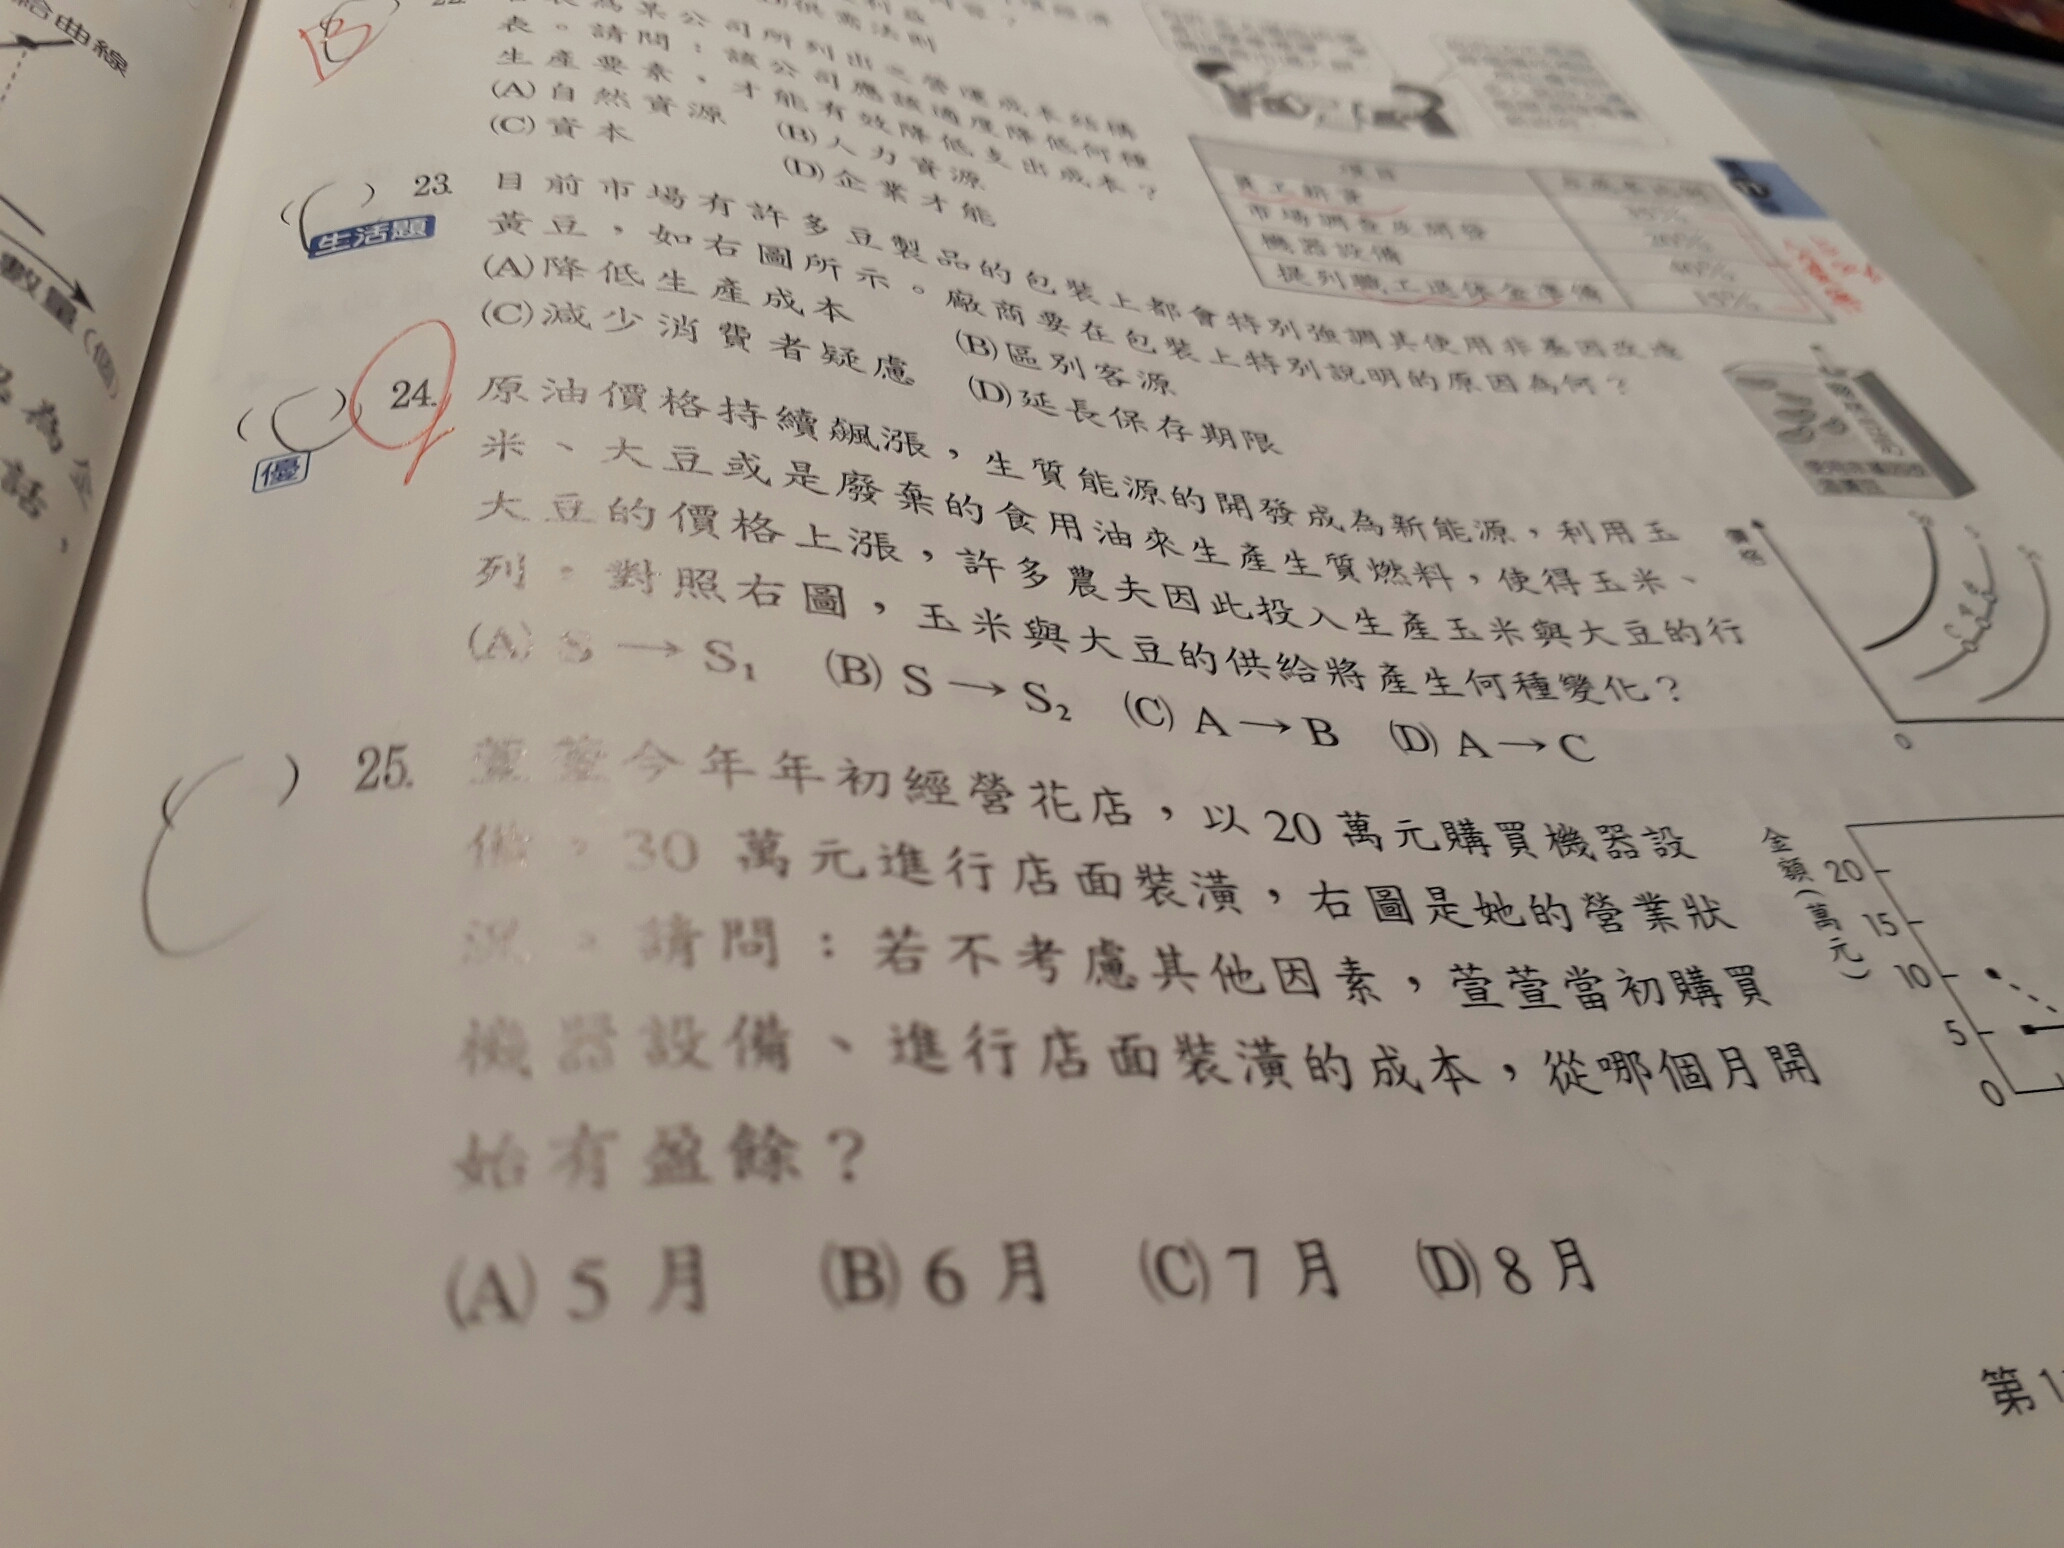 給曲線
數量(個)
為
話,
B
22.
法則
表。請問:該公司應該適度降低何種
生產要素,才能有效降低支出成本?
(A)自然資源 (B)人力資源
(C)資本 (D)企業才能
項目
員工薪資
市場調查及開發 20%
機器設備 40%
提列職工退休金準備 15%
( ) 23. 目前市場有許多豆製品的包裝上都會特別強調其使用非基因改造
生活題
黃豆,如右圖所示。廠商要在包裝上特別說明的原因為何?
(A)降低生產成本 (B)區別客源
(C)減少消費者疑慮 (D)延長保存期限
( ) 24. 原油價格持續飆漲,生質能源的開發成為新能源,利用玉
優
米、大豆或是廢棄的食用油來生產生質燃料,使得玉米、
大豆的價格上漲,許多農夫因此投入生產玉米與大豆的行
列。對照右圖,玉米與大豆的供給將產生何種變化?
(A) S → S₁ (B) S → S₂ (C) A → B (D) A → C
價格
0
( ) 25. 萱萱今年年初經營花店,以20萬元購買機器設
備,30萬元進行店面裝潢,右圖是她的營業狀
況。請問:若不考慮其他因素,萱萱當初購買
機器設備、進行店面裝潢的成本,從哪個月開
始有盈餘?
(A) 5 月 (B) 6 月 (C) 7 月 (D) 8 月
金額(萬元)
20
15
10
5
0
第1